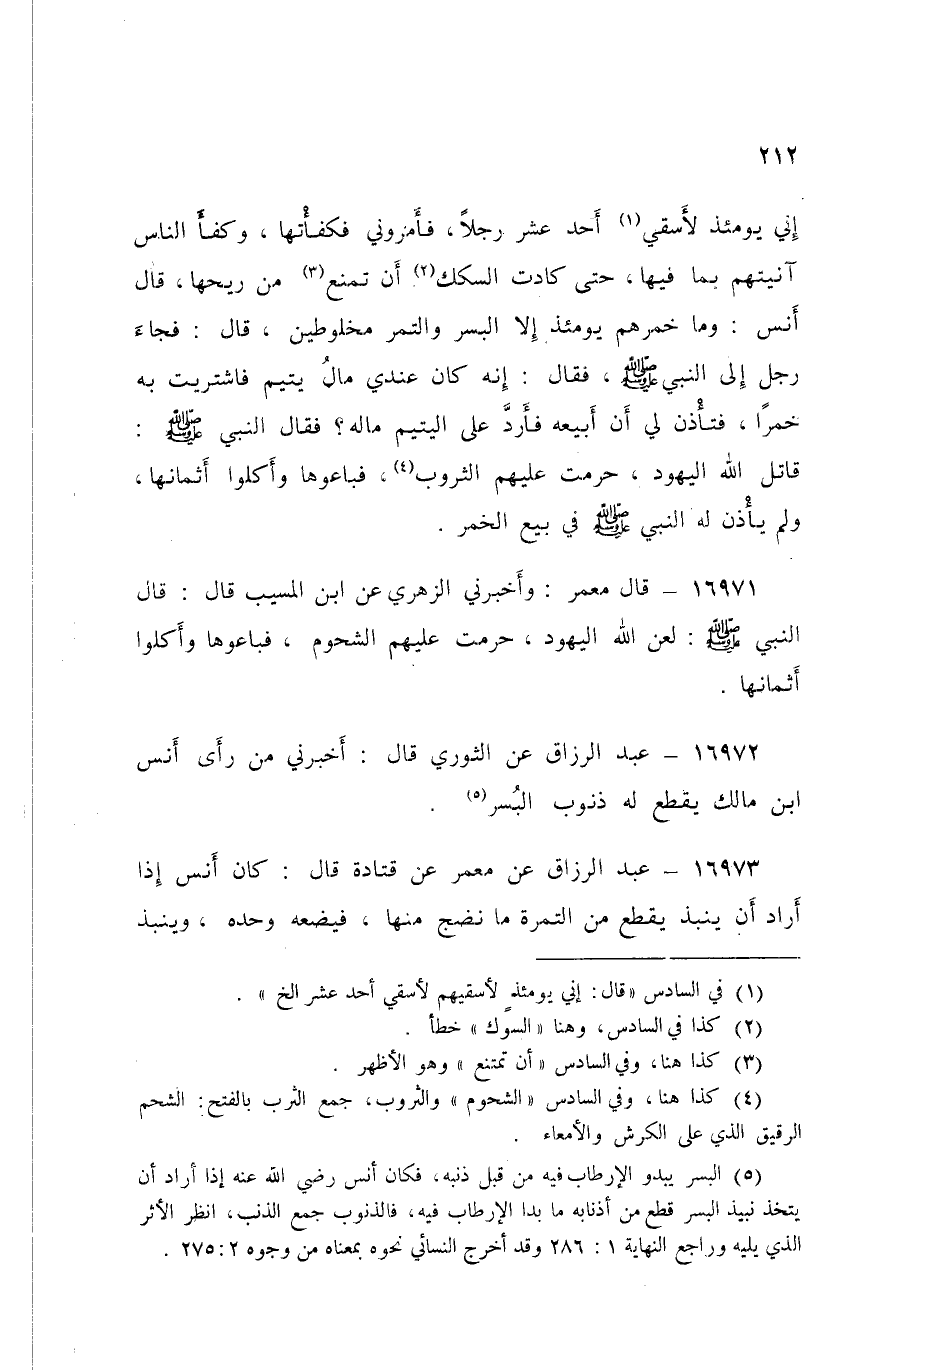 ٢١٢
إني يومئذ لأسقي(١) أحد عشر رجلاً، فأمروني فكفأتها ، وكفأ الناس
آنيتهم بما فيها، حتى كادت السكك(٢) أن تمنع(٣) من ريحها، قال
أنس : وما خمرهم يومئذ إلا البسر والتمر مخلوطين ، قال : فجاء
رجل إلى النبي ﷺ ، فقال : إنه كان عندي مالُ يتيم فاشتريت به
خمرًا ، فتأذن لي أن أبيعه فأردَّ على اليتيم ماله؟ فقال النبي ﷺ :
قاتل الله اليهود ، حرمت عليهم الثروب(٤)، فباعوها وأكلوا أثمانها،
ولم يأذن له النبي ﷺ في بيع الخمر .
١٦٩٧١ – قال معمر : وأخبرني الزهري عن ابن المسيب قال : قال
النبي ﷺ : لعن الله اليهود ، حرمت عليهم الشحوم ، فباعوها وأكلوا
أثمانها .
١٦٩٧٢ – عبد الرزاق عن الثوري قال : أخبرني من رأى أنس
ابن مالك يقطع له ذنوب البُسر(٥) .
١٦٩٧٣ – عبد الرزاق عن معمر عن قتادة قال : كان أنس إذا
أراد أن ينبذ يقطع من التمرة ما نضج منها ، فيضعه وحده ، وينبذ
(١) في السادس «قال: إني يومئذٍ لأسقيهم لأسقي أحد عشر الخ» .
(٢) كذا في السادس، وهنا «السوك» خطأ .
(٣) كذا هنا، وفي السادس «أن تمتنع» وهو الأظهر .
(٤) كذا هنا، وفي السادس «الشحوم» والثروب، جمع الثرب بالفتح: الشحم
الرقيق الذي على الكرش والأمعاء .
(٥) البسر يبدو الإرطاب فيه من قبل ذنبه، فكان أنس رضي الله عنه إذا أراد أن
يتخذ نبيذ البسر قطع من أذنابه ما بدا الإرطاب فيه، فالذنوب جمع الذنب، انظر الأثر
الذي يليه وراجع النهاية ١ : ٢٨٦ وقد أخرج النسائي نحوه بمعناه من وجوه ٢ :٢٧٥ .